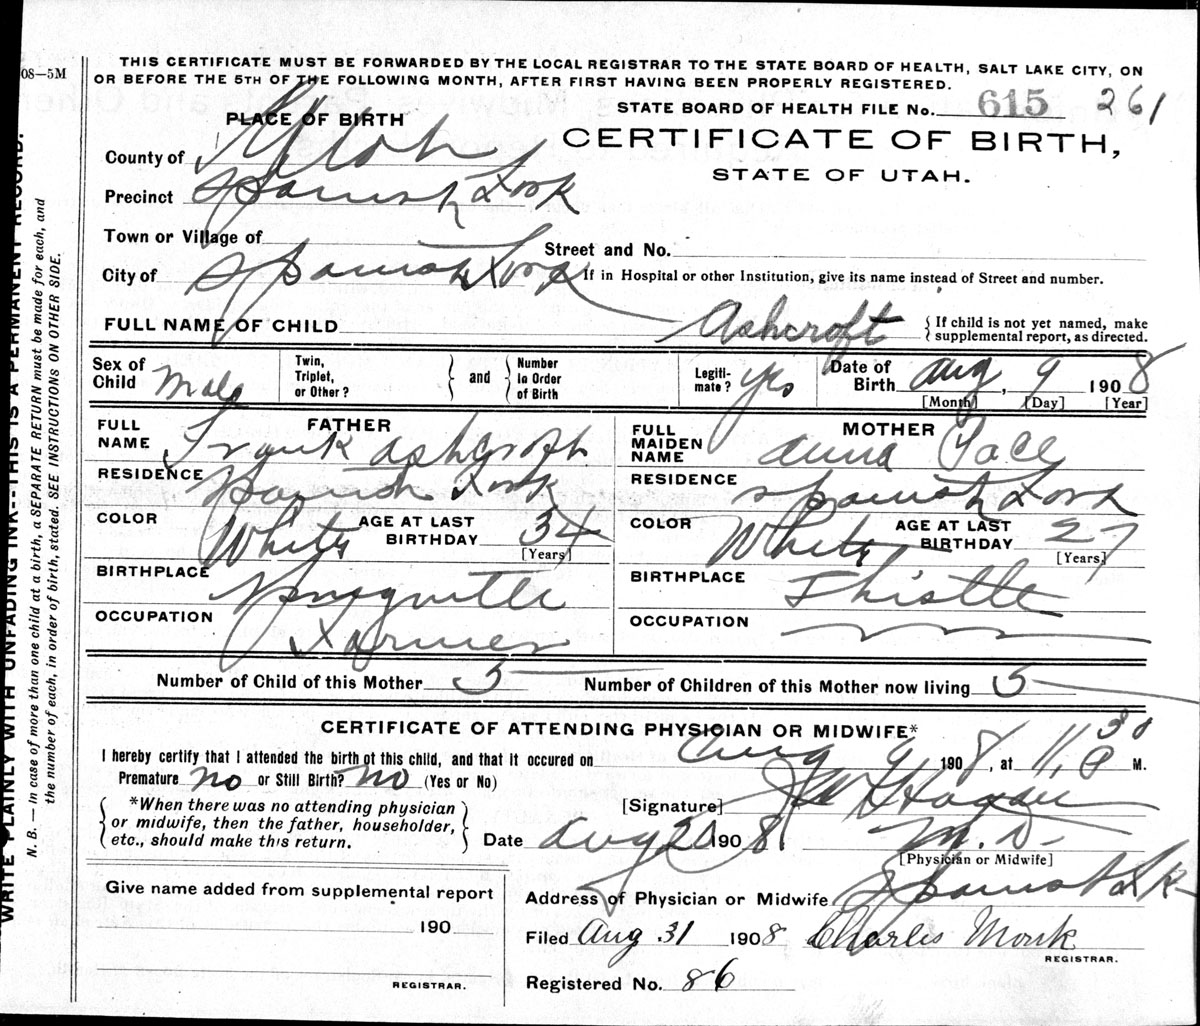 08—5M
THIS CERTIFICATE MUST BE FORWARDED BY THE LOCAL REGISTRAR TO THE STATE BOARD OF HEALTH, SALT LAKE CITY, ON
OR BEFORE THE 5TH OF THE FOLLOWING MONTH, AFTER FIRST HAVING BEEN PROPERLY REGISTERED.
STATE BOARD OF HEALTH FILE No. 615 261
PLACE OF BIRTH
CERTIFICATE OF BIRTH,
STATE OF UTAH.
County of Utah
Precinct Spanish Fork
Town or Village of
Street and No.
City of Spanish Fork
If in Hospital or other Institution, give its name instead of Street and number.
FULL NAME OF CHILD Ashcroft
{ If child is not yet named, make
supplemental report, as directed.
Sex of Child Male
Twin, Triplet, or Other? } and { Number in Order of Birth
Legiti-mate? Yes
Date of Birth Aug 9 1908
[Month] [Day] [Year]
FATHER
FULL NAME Frank Ashcroft
RESIDENCE Spanish Fork
COLOR White AGE AT LAST BIRTHDAY 34
[Years]
BIRTHPLACE Springville
OCCUPATION Farmer
MOTHER
FULL MAIDEN NAME Anna Pace
RESIDENCE Spanish Fork
COLOR White AGE AT LAST BIRTHDAY 27
[Years]
BIRTHPLACE Thistle
OCCUPATION
Number of Child of this Mother 5
Number of Children of this Mother now living 5
CERTIFICATE OF ATTENDING PHYSICIAN OR MIDWIFE*
I hereby certify that I attended the birth of this child, and that it occured on Aug 9 1908, at 11,30 P M.
Premature no or Still Birth? no (Yes or No)
{ *When there was no attending physician
or midwife, then the father, householder,
etc., should make this return. }
[Signature] Hagan
M. D.
[Physician or Midwife]
Date Aug 20 1908
Address of Physician or Midwife Spanish Fk
Filed Aug 31 1908 Charles Monk
REGISTRAR.
Registered No. 86
Give name added from supplemental report
190
REGISTRAR.
WRITE PLAINLY WITH UNFADING INK--THIS IS A PERMANENT RECORD.
N. B. — In case of more than one child at a birth, a SEPARATE RETURN must be made for each, and
the number of each, in order of birth, stated. SEE INSTRUCTIONS ON OTHER SIDE.